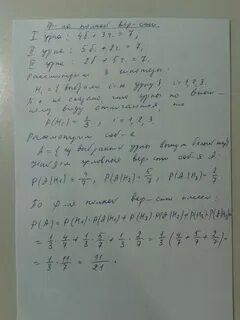 Ф-ла полной вер-сти
I урна: 4б + 3ч = 7,
II урна: 5б + 2ч = 7,
III урна: 2б + 5ч = 7.
Рассмотрим 3 гипотезы:
Hi = { выбрали i-ю урну }, i = 1,2,3.
не сказано урны по внеш-
нему виду отличаются, то
P(Hi) = 1/3, i = 1,2,3.
Рассмотрим соб-е
A = { из выбранной урны вынули белый шар }
Найдём условные вер-сти соб-я A:
P(A|H1) = 4/7, P(A|H2) = 5/7, P(A|H3) = 2/7
По ф-ле полной вер-сти имеем:
P(A) = P(H1)·P(A|H1) + P(H2)·P(A|H2) + P(H3)·P(A|H3)
= 1/3 · 4/7 + 1/3 · 5/7 + 1/3 · 2/7 = 1/3 (4/7 + 5/7 + 2/7) =
= 1/3 · 11/7 = 11/21.